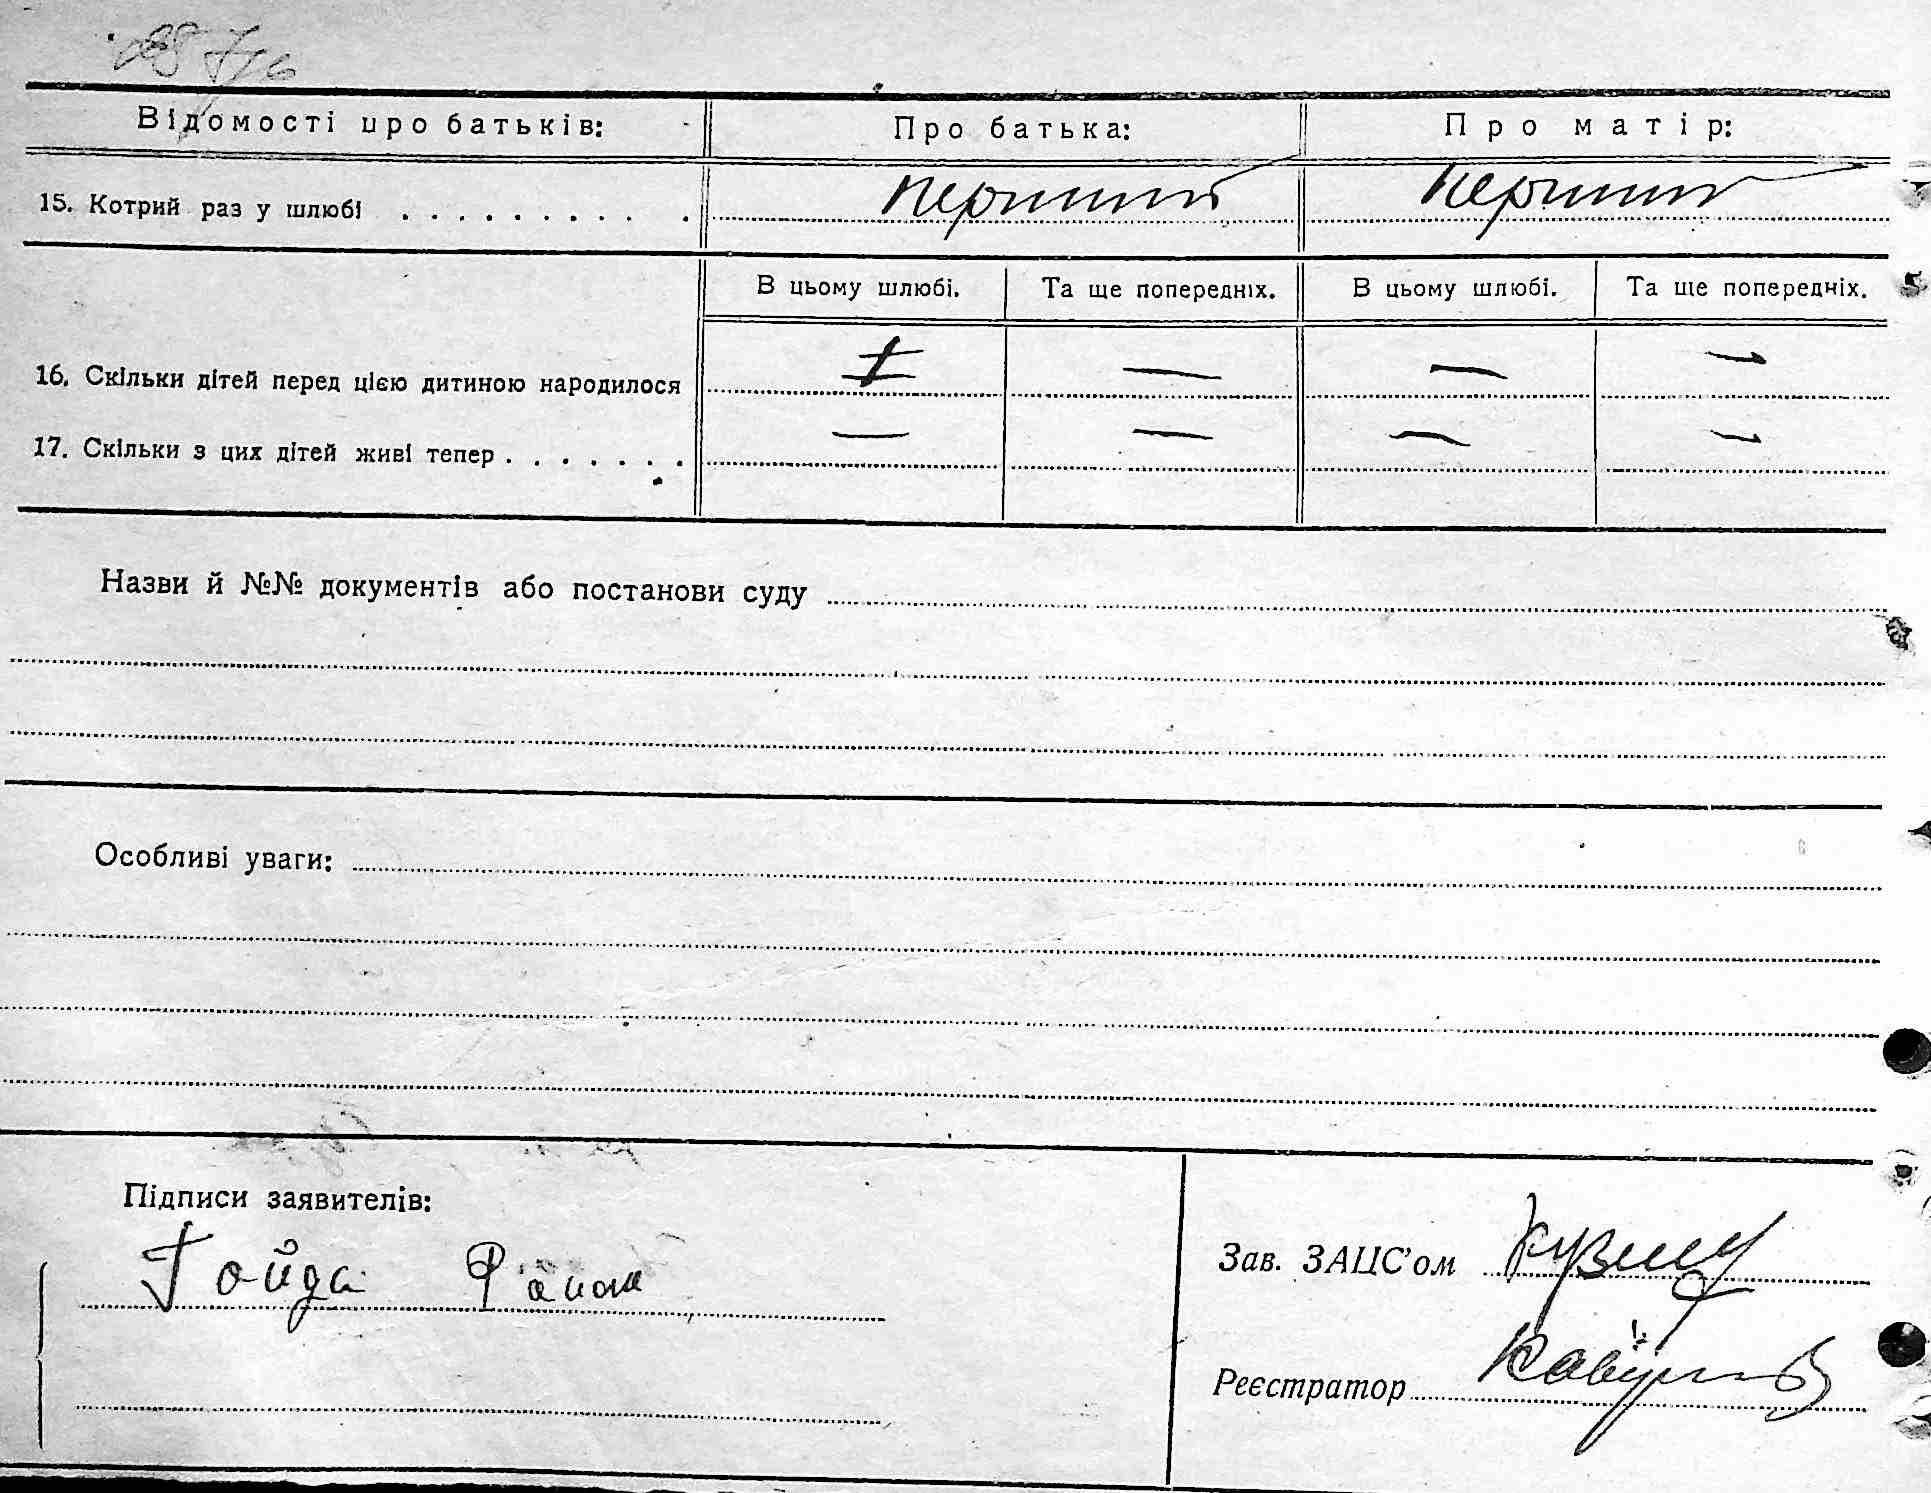 Відомості про батьків: Про батька: Про матір:
15. Котрий раз у шлюбі . . . . . . . . . . Перший Перший
В цьому шлюбі. Та ще попередніх. В цьому шлюбі. Та ще попередніх.
16. Скільки дітей перед цією дитиною народилося — — —
17. Скільки з цих дітей живі тепер . . . . . . . — — — —
Назви й №№ документів або постанови суду
Особливі уваги:
Підписи заявителів:
Гойда
Зав. ЗАЦС'ом
Реєстратор